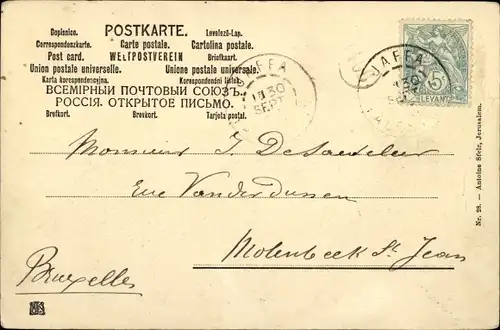 Dopisnice. POSTKARTE. Levelező-Lap.
Correspondenzkarte. Carte postale. Cartolina postale.
Post card. WELTPOSTVEREIN Briefkaart.
Union postale universelle. Unione postale universale.
Karta korespondencyjna. Korespondentni listek.
ВСЕМІРНЫЙ ПОЧТОВЫЙ СОЮЗЪ.
РОССІЯ. ОТКРЫТОЕ ПИСЬМО.
Brefkort. Brevkort. Tarjeta postal.
JAFFA
30
SEPT
JAFFA
30
5
LEVANT
Monsieur J. DeSaedeleer
Rue Vanderdussen
Molenbeek St Jean
Bruxelles
Nr. 28. – Antoine Sfeir, Jerusalem.